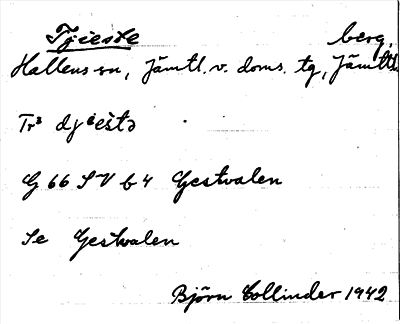 Tjieste berg,
Hallens sn, Jämtl. v. doms. tg, Jämtl.
Trs djieśtə
G 66 SV b 4 Gestvalen
Se Gestvalen
Björn Collinder 1942